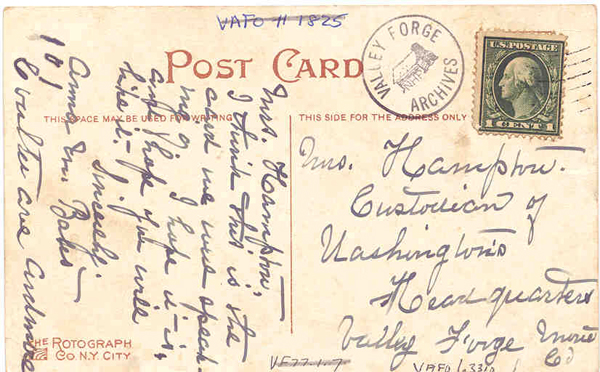 VAFO II 1825
POST CARD
VALLEY FORGE
ARCHIVES
U.S. POSTAGE
1 CENT 1
THIS SPACE MAY BE USED FOR WRITING
THIS SIDE FOR THE ADDRESS ONLY
Mrs. Hampton.
I think this is the
card we were speak-
ing I hope it is
and hope you will
like it.
Sincerely.
Anna M. Bates
101
Coulter ave Ardmore
Mrs. Hampton.
Custodian of
Washington's
Head quarters
Valley Forge
Co
THE ROTOGRAPH
CO N.Y. CITY
VF77.1.7.
VAFO